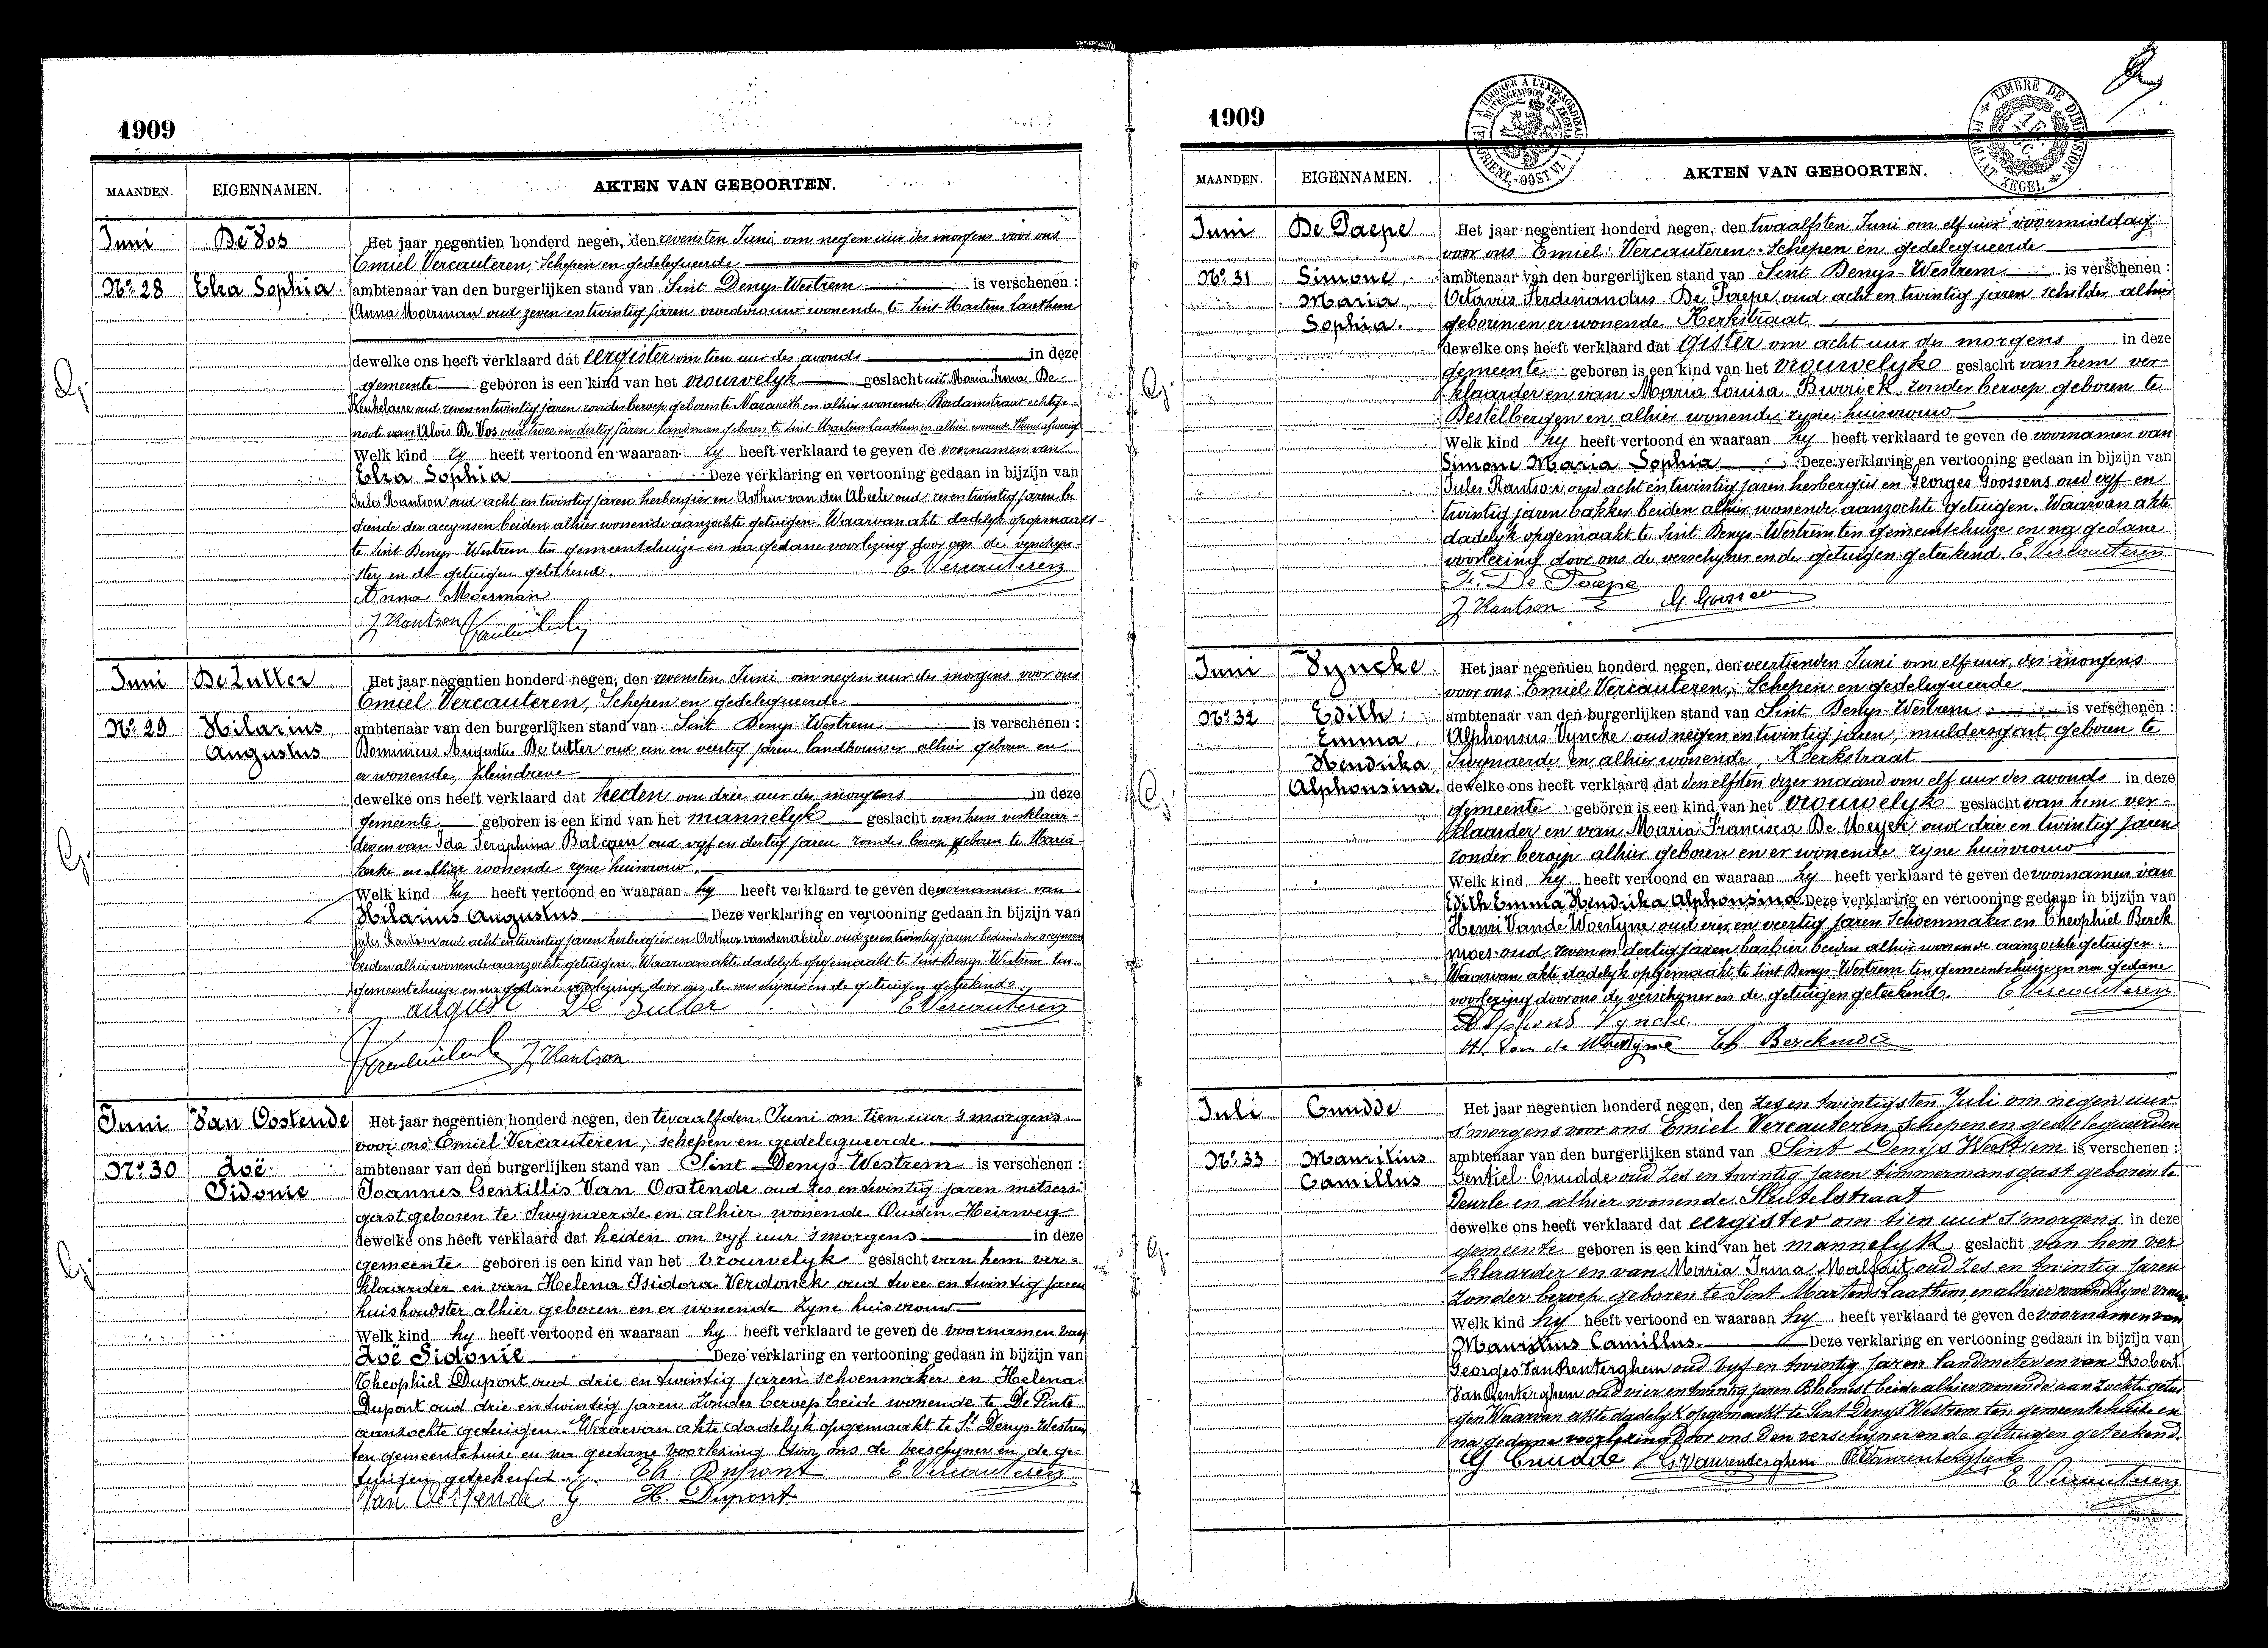 1909
MAANDEN. EIGENNAMEN. AKTEN VAN GEBOORTEN.
Juni De Vos Het jaar negentien honderd negen, den zevensten Juni om negen uur des morgens voor ons
Emiel Vercauteren, Schepen en gedelegueerde
No. 28 Elza Sophia ambtenaar van den burgerlijken stand van Sint Denys-Westrem is verschenen :
Anna Moerman oud zeven en twintig jaren vroedvrouw wonende te Sint Martens Laathem
dewelke ons heeft verklaard dat eergister om tien uur des avonds in deze
gemeente geboren is een kind van het vrouwelyk geslacht uit Maria Irma De
Keukelaere oud zeven en twintig jaren zonder beroep geboren te Nazareth en alhier wonende echtge-
noote van Alois De Vos oud twee en dertig jaren landman geboren te Sint Martens Laathem en alhier wonende thans afwezig
Welk kind zy heeft vertoond en waaraan zy heeft verklaard te geven de voornamen van
Elza Sophia Deze verklaring en vertooning gedaan in bijzijn van
Jules Hantson oud acht en twintig jaren herbergier en Arthur van den Abeele oud zes en twintig jaren be
diende der accynsen beiden alhier wonende aanzochte getuigen. Waarvan akte dadelyk opgemaakt
te Sint Denys-Westrem ten gemeentehuize en na gedane voorlezing door ons de verschyn-
ster en de getuigen geteekend. E. Vercauteren
Anna Moerman
J Hantson
Juni De Zutter Het jaar negentien honderd negen, den zevensten Juni om negen uur des morgens voor ons
Emiel Vercauteren, Schepen en gedelegueerde
No. 29 Hilarius, ambtenaar van den burgerlijken stand van Sint Denys-Westrem is verschenen :
Augustus Dominicus Augustus De Zutter oud een en veertig jaren landbouwer alhier geboren en
er wonende, Kleindreve
dewelke ons heeft verklaard dat heden om drie uur des morgens in deze
gemeente geboren is een kind van het mannelyk geslacht van hem verklaar-
der en van Ida Seraphina Balcaen oud vyf en dertig jaren zonder beroep geboren te Maria
kerke en alhier wonende zyne huisvrouw.
Welk kind hy heeft vertoond en waaraan hy heeft verklaard te geven de voornamen van
Hilarius Augustus Deze verklaring en vertooning gedaan in bijzijn van
Jules Hantson oud acht en twintig jaren herbergier en Arthur vandenabeele oud zes en twintig jaren bediende der accynsen
beiden alhier wonende aanzochte getuigen. Waarvan akte dadelyk opgemaakt te Sint Denys-Westrem ten
gemeentehuize en na gedane voorlezing door ons de verschyner en de getuigen geteekend.
august De Zutter E Vercauteren
J Hantson
Juni Van Oostende Het jaar negentien honderd negen, den twaalfden Juni om tien uur 's morgens
voor ons Emiel Vercauteren, schepen en gedelegueerde
No. 30 Zoë ambtenaar van den burgerlijken stand van Sint Denys-Westrem is verschenen :
Sidonie Joannes Gentillis Van Oostende oud zes en twintig jaren metsers-
gast geboren te Swynaerde en alhier wonende Ouden Heirweg
dewelke ons heeft verklaard dat heden om vyf uur 's morgens in deze
gemeente geboren is een kind van het vrouwelyk geslacht van hem ver-
klaarder en van Helena Isidora Verdonck oud twee en twintig jaren
huishoudster alhier geboren en er wonende zyne huisvrouw
Welk kind hy heeft vertoond en waaraan hy heeft verklaard te geven de voornamen van
Zoë Sidonie Deze verklaring en vertooning gedaan in bijzijn van
Theophiel Dupont oud drie en twintig jaren schoenmaker en Helena
Dupont oud drie en twindig jaren zonder beroep beide wonende te De Pinte
aanzochte getuigen. Waarvan akte dadelyk opgemaakt te St Denys-Westrem
ten gemeentehuize en na gedane voorlezing door ons de verschyner en de ge-
tuigen geteekend. Th. Dupont E Vercauteren
Van Oostende G H. Dupont
1909
MAANDEN. EIGENNAMEN. AKTEN VAN GEBOORTEN.
Juni De Paepe Het jaar negentien honderd negen, den twaalfsten Juni om elf uur voormiddag
voor ons Emiel Vercauteren Schepen en gedelegueerde
No. 31 Simone, ambtenaar van den burgerlijken stand van Sint Denys-Westrem is verschenen :
Maria, Octavus Ferdinandus De Paepe oud acht en twintig jaren schilder alhier
Sophia. geboren en er wonende Kerkstraat
dewelke ons heeft verklaard dat gister om acht uur des morgens in deze
gemeente geboren is een kind van het vrouwelyk geslacht van hem ver-
klaarder en van Maria Louisa Buvrick zonder beroep geboren te
Destelbergen en alhier wonende zyne huisvrouw
Welk kind hy heeft vertoond en waaraan hy heeft verklaard te geven de voornamen van
Simone Maria Sophia Deze verklaring en vertooning gedaan in bijzijn van
Jules Hantson oud acht en twintig jaren herbergier en Georges Goossens oud vyf en
twintig jaren bakker beiden alhier wonende aanzochte getuigen. Waarvan akte
dadelyk opgemaakt te Sint Denys-Westrem ten gemeentehuize en na gedane
voorlezing door ons de verschyner en de getuigen geteekend. E. Vercauteren
De Paepe
J Hantson G. Goossens
Juni Vyncke Het jaar negentien honderd negen, den veertienden Juni om elf uur des morgens
voor ons Emiel Vercauteren, Schepen en gedelegueerde
No. 32 Edith, ambtenaar van den burgerlijken stand van Sint Denys-Westrem is verschenen :
Emma, Alphonsus Vyncke oud negen en twintig jaren, muldersgast geboren te
Hendrika Swynaerde en alhier wonende, Kerkstraat
Alphonsina. dewelke ons heeft verklaard dat den elfsten dezer maand om elf uur des avonds in deze
gemeente geboren is een kind van het vrouwelyk geslacht van hem ver-
klaarder en van Maria Francisca De Meyer oud drie en twintig jaren
zonder beroep alhier geboren en er wonende zyne huisvrouw
Welk kind hy heeft vertoond en waaraan hy heeft verklaard te geven de voornamen van
Edith Emma Hendrika Alphonsina Deze verklaring en vertooning gedaan in bijzijn van
Henri Van de Woestyne oud en veertig jaren Schoenmaker en Theophiel Berck
moes oud zeven en dertig jaren barbier beiden alhier wonende aanzochte getuigen.
Waarvan akte dadelyk opgemaakt te Sint Denys-Westrem ten gemeentehuize en na gedane
voorlezing door ons de verschyner en de getuigen geteekend. E Vercauteren
Alphons Vyncke
H. Van de Woestyne Th Berckmoes
Juli Cnudde Het jaar negentien honderd negen, den zes en twintigsten Juli om negen uur
s'morgens voor ons Emiel Vercauteren Schepen en gedelequeerden
No. 33 Mauritius ambtenaar van den burgerlijken stand van Sint Denijs Westrem is verschenen :
Camillus Gentiel Cnudde oud zes en twintig jaren timmermansgast geboren te
Deurle en alhier wonende Sleutelstraat
dewelke ons heeft verklaard dat eergister om tien uur s'morgens in deze
gemeente geboren is een kind van het mannelyk geslacht van hem ver
klaarder en van Maria Irma Malfait oud zes en twintig jaren
zonder beroep geboren te Sint Martens Laathem en alhier wonende zyne vrouw
Welk kind hy heeft vertoond en waaraan hy heeft verklaard te geven de voornamen van
Mauritius Camillus. Deze verklaring en vertooning gedaan in bijzijn van
Georges Van Renterghem oud vyf en twintig jaren landmeter en van Robert
Van Renterghem oud vier en twintig jaren Bloemist beide alhier wonende aanzochte getui
gen Waarvan akte dadelyk opgemaakt te Sint Denys Westrem ten gemeentehuize en
na gedane voorlezing door ons den verschyner en de getuigen geteekend.
G Cnudde G. Vanrenterghem R Vanrenterghem
E Vercauteren